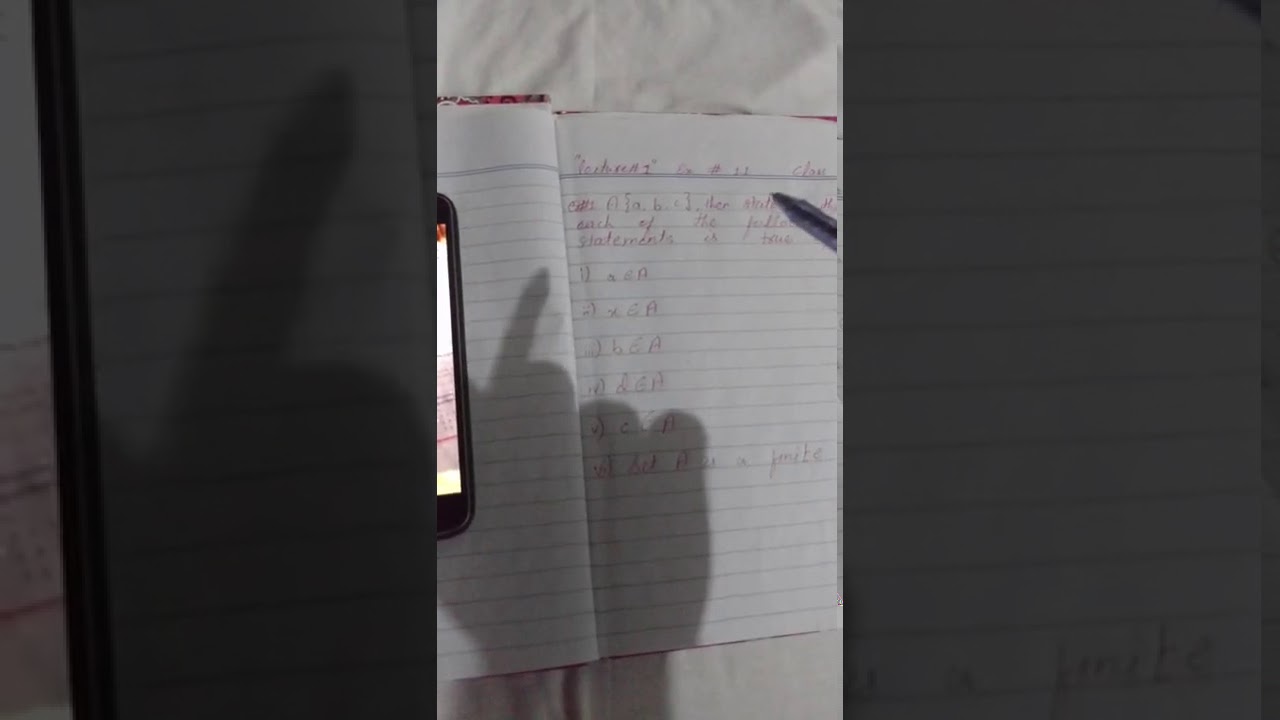 "Lecture#1" Ex # 11 Class
A {a, b, c}, then state
each of the follow
statements is true
i) a ∈ A
ii) x ∈ A
iii) b ∈ A
iv) d ∈ A
v) c ∈ A
vi) Set A is a finite
a finite